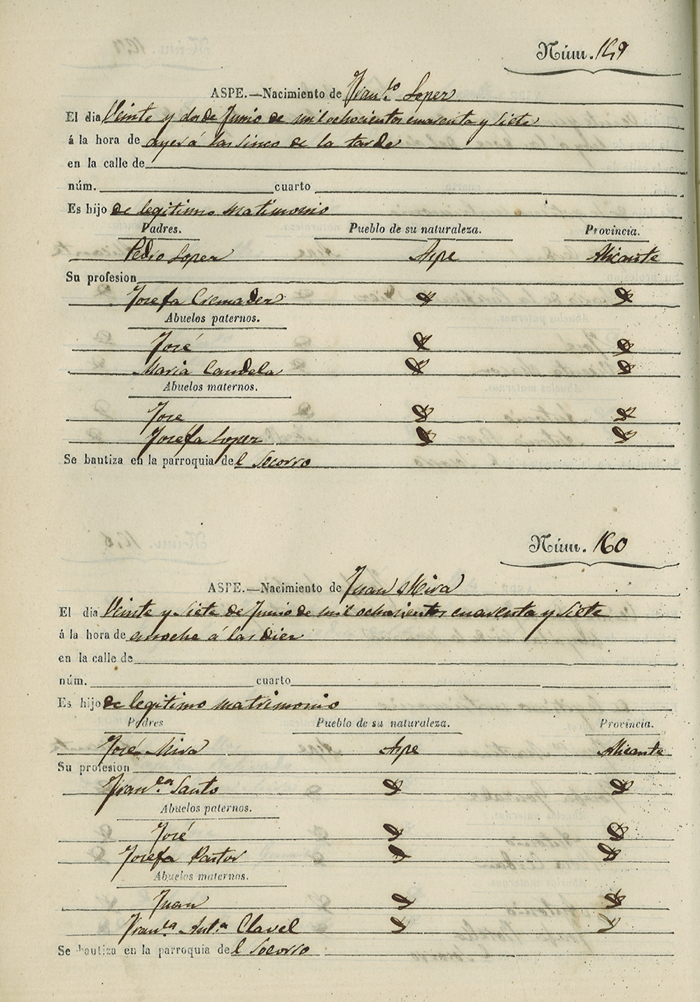 Núm. 159
ASPE.—Nacimiento de Fran.co Loper
El dia Veinte y dos de Junio de mil ochocientos cuarenta y siete
á la hora de ayer á las Sinco de la tarde
en la calle de
núm. cuarto
Es hijo de legitimo matimonio
Padres. Pueblo de su naturaleza. Provincia.
Pedro Loper Aspe Alicante
Su profesion
Josefa Cremader
Abuelos paternos.
José
Maria Candela
Abuelos maternos.
Jose
Josefa Loper
Se bautiza en la parroquia del Socorro
Núm. 160
ASPE.—Nacimiento de Juan Mira
El dia Veinte y siete de Junio de mil ochocientos cuarenta y siete
á la hora de anoche á las dier
en la calle de
núm. cuarto
Es hijo de legitimo matrimonio
Padres Pueblo de su naturaleza. Provincia.
José Mira Aspe Alicante
Su profesion
Fran.ca Santo
Abuelos paternos.
José
Josefa Pastor
Abuelos maternos.
Juan
Fran.ca Ant.a Clavel
Se bautiza en la parroquia del Socorro